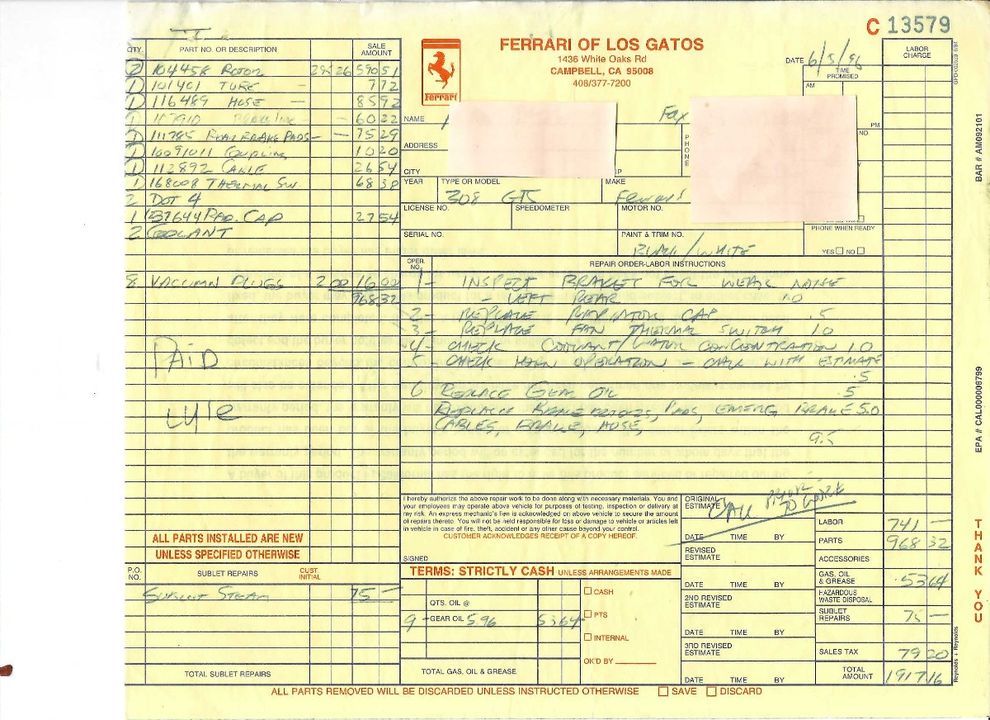 C 13579
FERRARI OF LOS GATOS
1436 White Oaks Rd
CAMPBELL, CA 95008
408/377-7200
Ferrari
DATE 6/5/96
TIME PROMISED
AM
PM
LABOR CHARGE
QTY. PART NO. OR DESCRIPTION SALE AMOUNT
2 104458 ROTOR 295.26 590 51
1 101401 TUBE - 7 72
1 116489 HOSE - 85 92
60 22
1 111785 REAR BRAKE PADS - - 75 29
1 10091011 COUPLING 10 20
1 112892 CABLE 26 54
1 168008 THERMAL SW. 68 38
2 DOT 4
1 B37644 RAD. CAP 27 54
2 COOLANT
8 VACUUM PLUGS 2 00 16 00
968 32
PAID
Lyle
NAME
Fax
ADDRESS
PHONE
NO
CITY
YEAR TYPE OR MODEL MAKE
308 GTS Ferrari
LICENSE NO. SPEEDOMETER MOTOR NO.
PHONE WHEN READY
SERIAL NO. PAINT & TRIM NO.
BLACK/WHITE
YES NO
OPER. NO. REPAIR ORDER-LABOR INSTRUCTIONS
1- INSPECT BRACKET FOR WEAR NOISE
- LEFT REAR 1.0
2- REPLACE RADIATOR CAP .5
3- REPLACE FAN THERMAL SWITCH 1.0
4- CHECK COOLANT/WATER CONCENTRATION 1.0
5- CHECK HORN OPERATION - CALL WITH ESTIMATE
.5
6 REPLACE GEAR OIL .5
REPLACE BRAKE ROTORS, PADS, EMERG. BRAKE 5.0
CABLES, BRAKE, HOSE,
9.5
I hereby authorize the above repair work to be done along with necessary materials. You and
your employees may operate above vehicle for purposes of testing, inspection or delivery at
my risk. An express mechanic's lien is acknowledged on above vehicle to secure the amount
of repairs thereto. You will not be held responsible for loss or damage to vehicle or articles left
in vehicle in case of fire, theft, accident or any other cause beyond your control.
CUSTOMER ACKNOWLEDGES RECEIPT OF A COPY HEREOF.
SIGNED
ORIGINAL ESTIMATE CALL PRIOR TO WORK
DATE TIME BY
REVISED ESTIMATE
DATE TIME BY
2ND REVISED ESTIMATE
DATE TIME BY
3RD REVISED ESTIMATE
DATE TIME BY
LABOR 741 -
PARTS 968 32
ACCESSORIES
GAS, OIL & GREASE 53 64
HAZARDOUS WASTE DISPOSAL
SUBLET REPAIRS 75 -
SALES TAX 79 20
TOTAL AMOUNT 1917 16
ALL PARTS INSTALLED ARE NEW
UNLESS SPECIFIED OTHERWISE
P.O. NO. SUBLET REPAIRS CUST. INITIAL
SUBLET STEAM 75 -
TOTAL SUBLET REPAIRS
TERMS: STRICTLY CASH UNLESS ARRANGEMENTS MADE
QTS. OIL @
9 - GEAR OIL 5.96 53 64
TOTAL GAS, OIL & GREASE
CASH
PTS
INTERNAL
OK'D BY
ALL PARTS REMOVED WILL BE DISCARDED UNLESS INSTRUCTED OTHERWISE SAVE DISCARD
BAR # AM092101
EPA # CAL000006799
THANK YOU
Reynolds + Reynolds